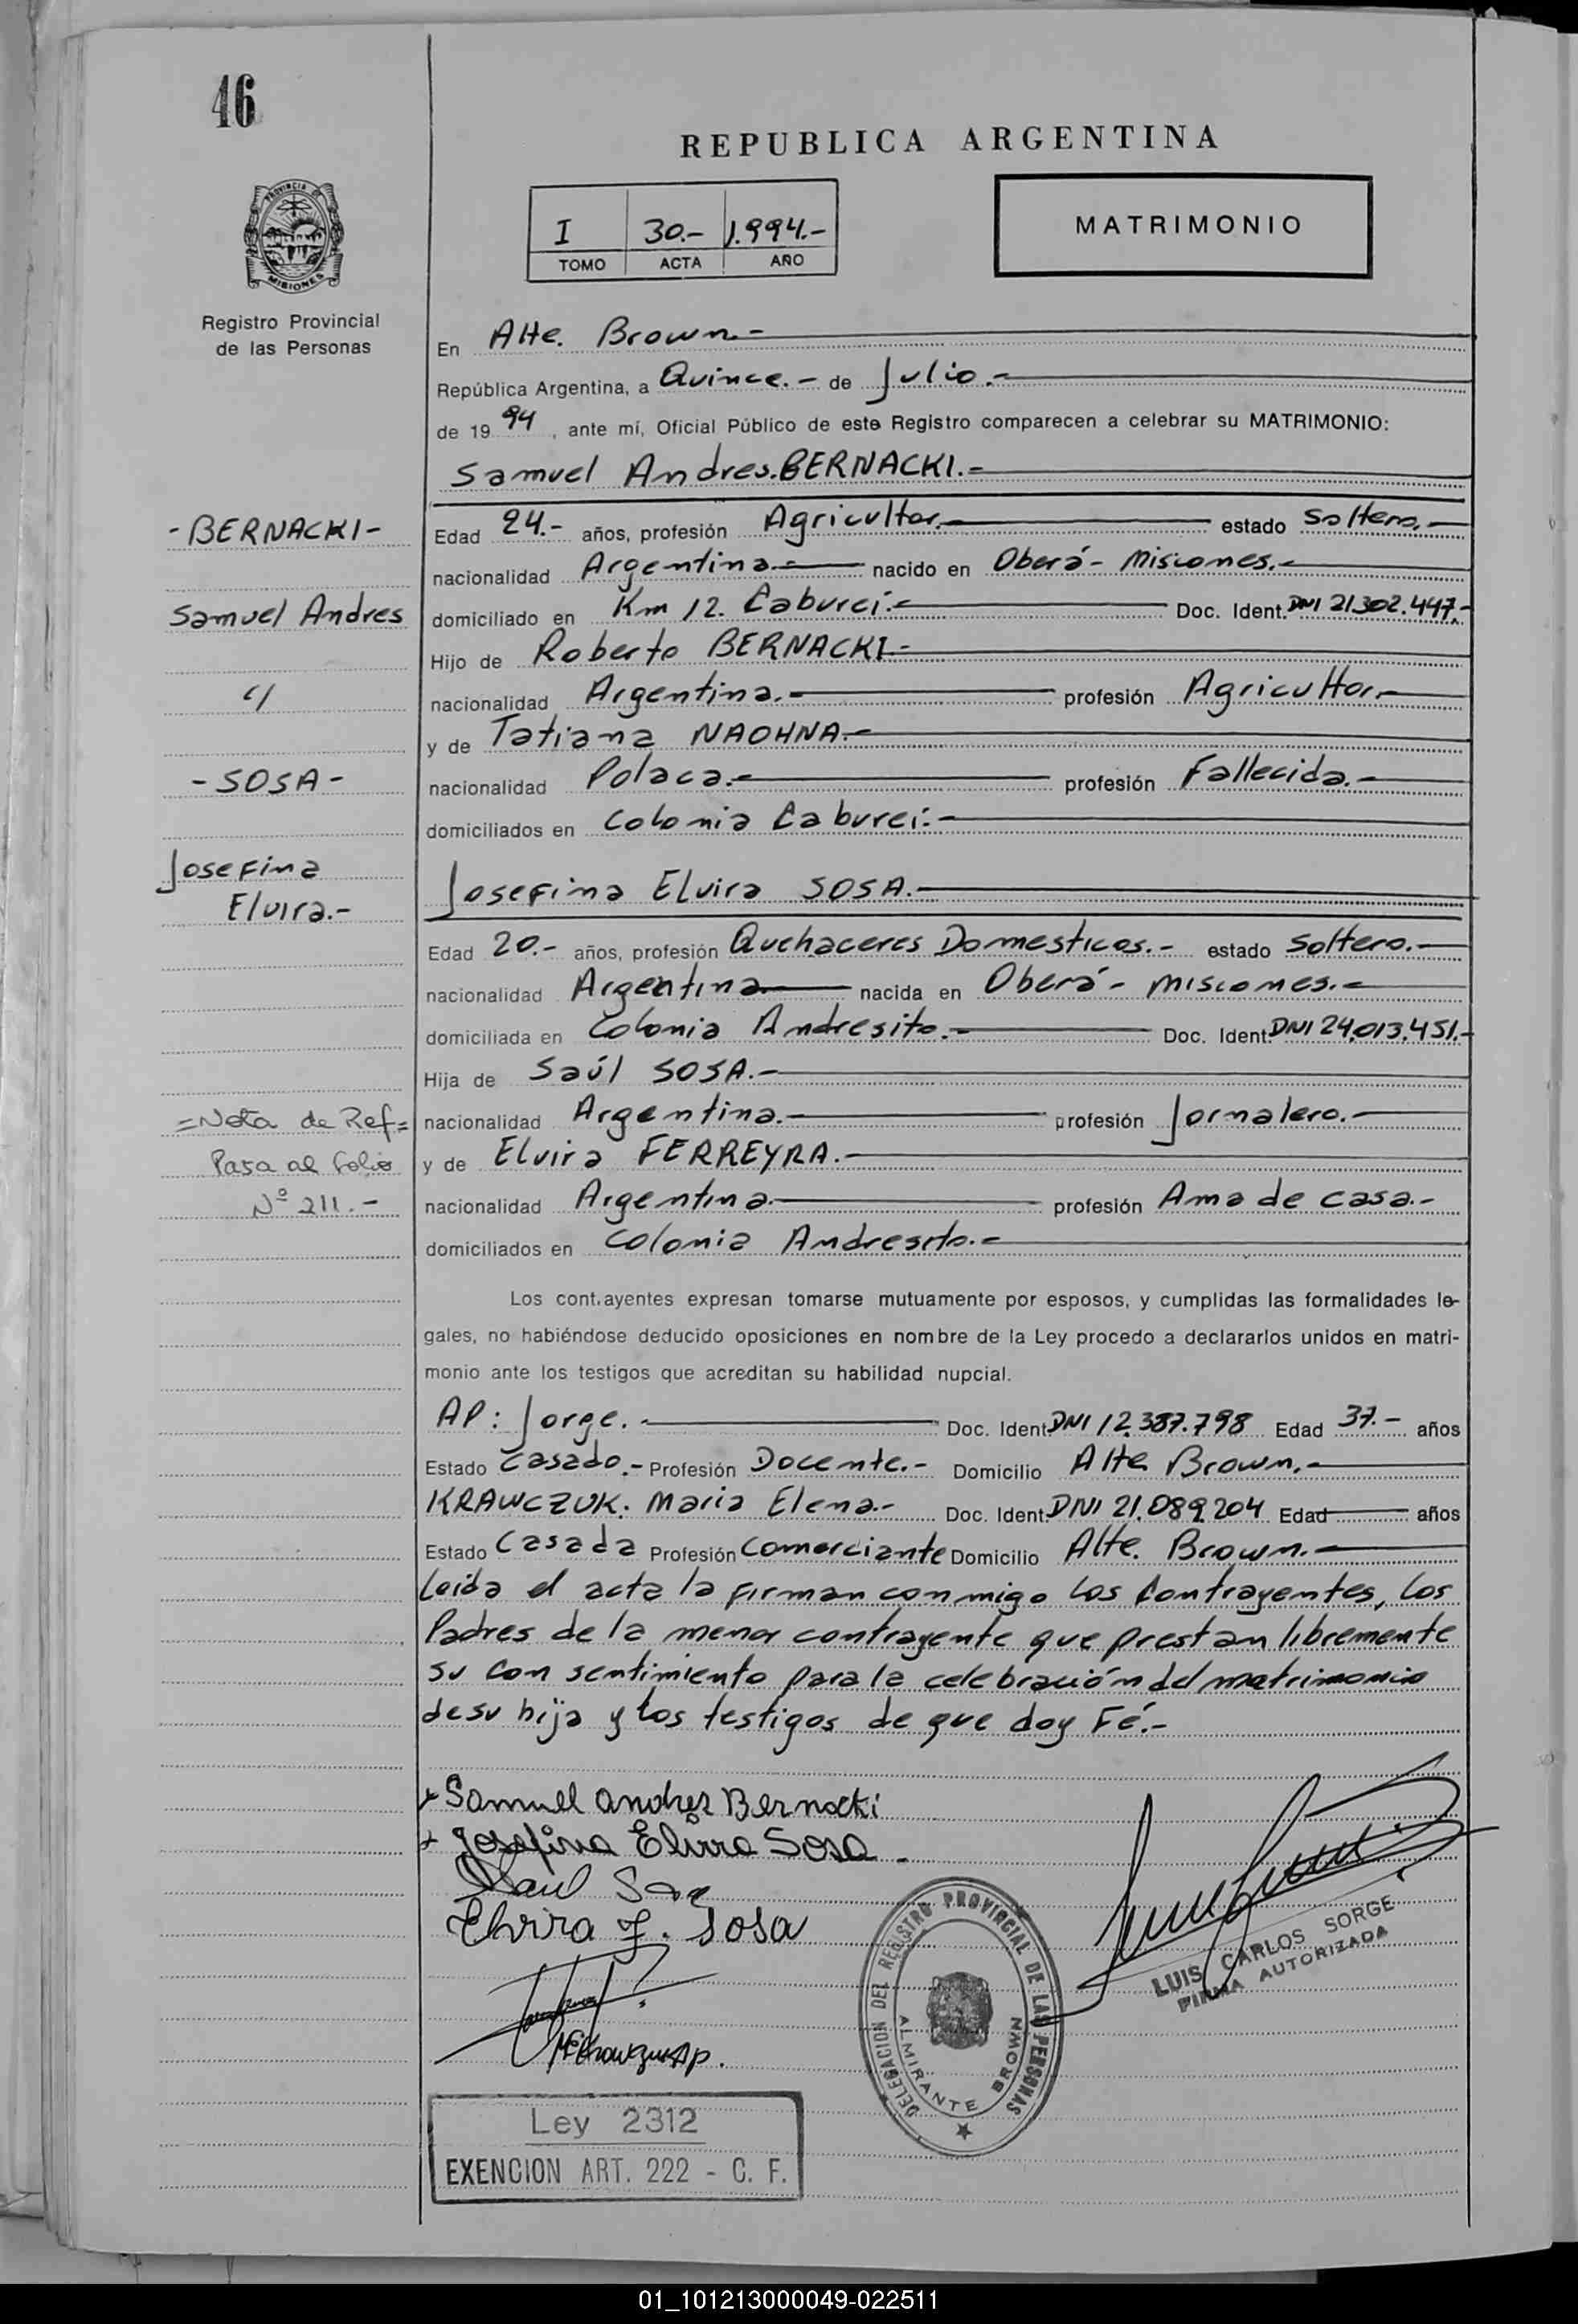 46
REPUBLICA ARGENTINA
PROVINCIA DE
MISIONES
I 30.- 1.994.-
TOMO ACTA AÑO
MATRIMONIO
Registro Provincial
de las Personas
En Alte. Brown.-
República Argentina, a Quince.- de Julio.-
de 19 94, ante mí, Oficial Público de este Registro comparecen a celebrar su MATRIMONIO:
Samuel Andres.BERNACKI.-
-BERNACKI-
Samuel Andres
c/
-SOSA-
Josefina
Elvira.-
=Nota de Ref=
Pasa al folio
Nº 211.-
Edad 24.- años, profesión Agricultor.- estado Soltero.-
nacionalidad Argentina.- nacido en Oberá- Misiones.-
domiciliado en Km 12. Caburei.- Doc. Ident. DNI 21.302.447.-
Hijo de Roberto BERNACKI-
nacionalidad Argentina.- profesión Agricultor.-
y de Tatiana NAOHNA.-
nacionalidad Polaca.- profesión Fallecida.-
domiciliados en Colonia Caburei.-
Josefina Elvira SOSA.-
Edad 20.- años, profesión Quehaceres Domesticos.- estado Soltero.-
nacionalidad Argentina nacida en Oberá- Misiones.-
domiciliada en Colonia Andresito.- Doc. Ident. DNI 24.013.451.-
Hija de Saúl SOSA.-
nacionalidad Argentina.- profesión Jornalero.-
y de Elvira FERREYRA.-
nacionalidad Argentina profesión Ama de casa.-
domiciliados en Colonia Andresito.-
Los cont.ayentes expresan tomarse mutuamente por esposos, y cumplidas las formalidades le-
gales, no habiéndose deducido oposiciones en nombre de la Ley procedo a declararlos unidos en matri-
monio ante los testigos que acreditan su habilidad nupcial.
AP: Jorge.- Doc. Ident. DNI 12.387.798 Edad 37.- años
Estado Casado.- Profesión Docente.- Domicilio Alte Brown.-
KRAWCZUK. Maria Elena.- Doc. Ident. DNI 21.089.204 Edad años
Estado Casada Profesión Comerciante Domicilio Alte. Brown.-
Leida el acta la firman conmigo los Contrayentes, los
Padres de la menor contrayente que prestan libremente
su con sentimiento para la celebración del matrimonio
de su hija y los testigos de que doy Fé.-
Samuel andres Bernacki
Josefina Elvira Sosa.
Saul Sosa
Elvira F. Sosa
DELEGACION DEL REGISTRO PROVINCIAL DE LAS PERSONAS
ALMIRANTE BROWN
LUIS CARLOS SORGE
FIRMA AUTORIZADA
Ley 2312
EXENCION ART. 222 - C. F.
01_101213000049-022511